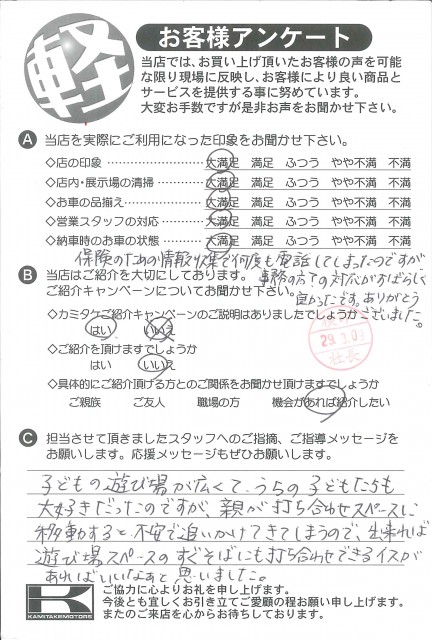 軽
お客様アンケート
当店では、お買い上げ頂いたお客様の声を可能
な限り現場に反映し、お客様により良い商品と
サービスを提供する事に努めています。
大変お手数ですが是非お声をお聞かせ下さい。
A 当店を実際にご利用になった印象をお聞かせ下さい。
◇店の印象 大満足 満足 ふつう やや不満 不満
◇店内・展示場の清掃 大満足 満足 ふつう やや不満 不満
◇お車の品揃え 大満足 満足 ふつう やや不満 不満
◇営業スタッフの対応 大満足 満足 ふつう やや不満 不満
◇納車時のお車の状態 大満足 満足 ふつう やや不満 不満
保険のための情報収集で何度も電話してしまったのですが、
事務の方々の対応がすばらしく
良かったです。ありがとう
ございました。
B 当店はご紹介を大切にしております。
ご紹介キャンペーンについてお聞かせ下さい。
◇カミタケご紹介キャンペーンのご説明はありましたでしょうか
はい いいえ
◇ご紹介を頂けますでしょうか
はい いいえ
社長
◇具体的にご紹介頂ける方とのご関係をお聞かせ頂けますでしょうか
ご親族 ご友人 職場の方 機会があれば紹介したい
C 担当させて頂きましたスタッフへのご指摘、ご指導メッセージを
お願いします。応援メッセージもぜひお願いします。
子どもの遊び場が広くて、うちの子どもたちも
大好きだったのですが、親が打ち合わせスペースに
移動すると不安で追いかけてきてしまうので、出来れば
遊び場スペースのすぐそばにも打ち合わせできるイスが
あればいいなぁと思いました。
K
KAMITAKEMOTORS
ご協力に心よりお礼を申し上げます。
今後とも宜しくお引き立てご愛顧の程お願い申し上げます。
またのご来店を心からお待ちしております。